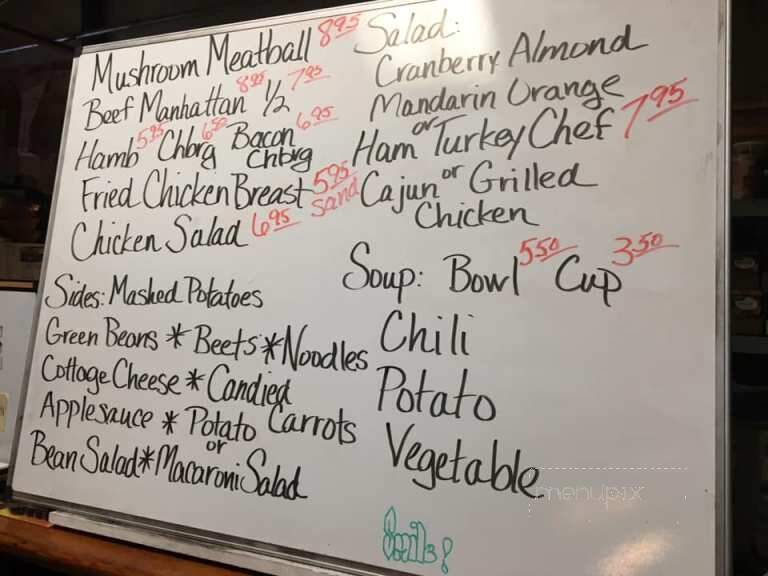 Mushroom Meatball 8.95
Beef Manhattan 8.95 1/2 7.95
Hamb 5.95 Chbrg 6.50 Bacon Chbrg 6.95
Fried Chicken Breast 5.95 Sand
Chicken Salad 6.95
Sides: Mashed Potatoes
Green Beans * Beets * Noodles
Cottage Cheese * Candied Carrots
Applesauce * Potato or
Bean Salad * Macaroni Salad
Salad:
Cranberry Almond
Mandarin Orange
Ham or Turkey Chef 7.95
Cajun or Grilled
Chicken
Soup: Bowl 5.50 Cup 3.50
Chili
Potato
Vegetable
menupix